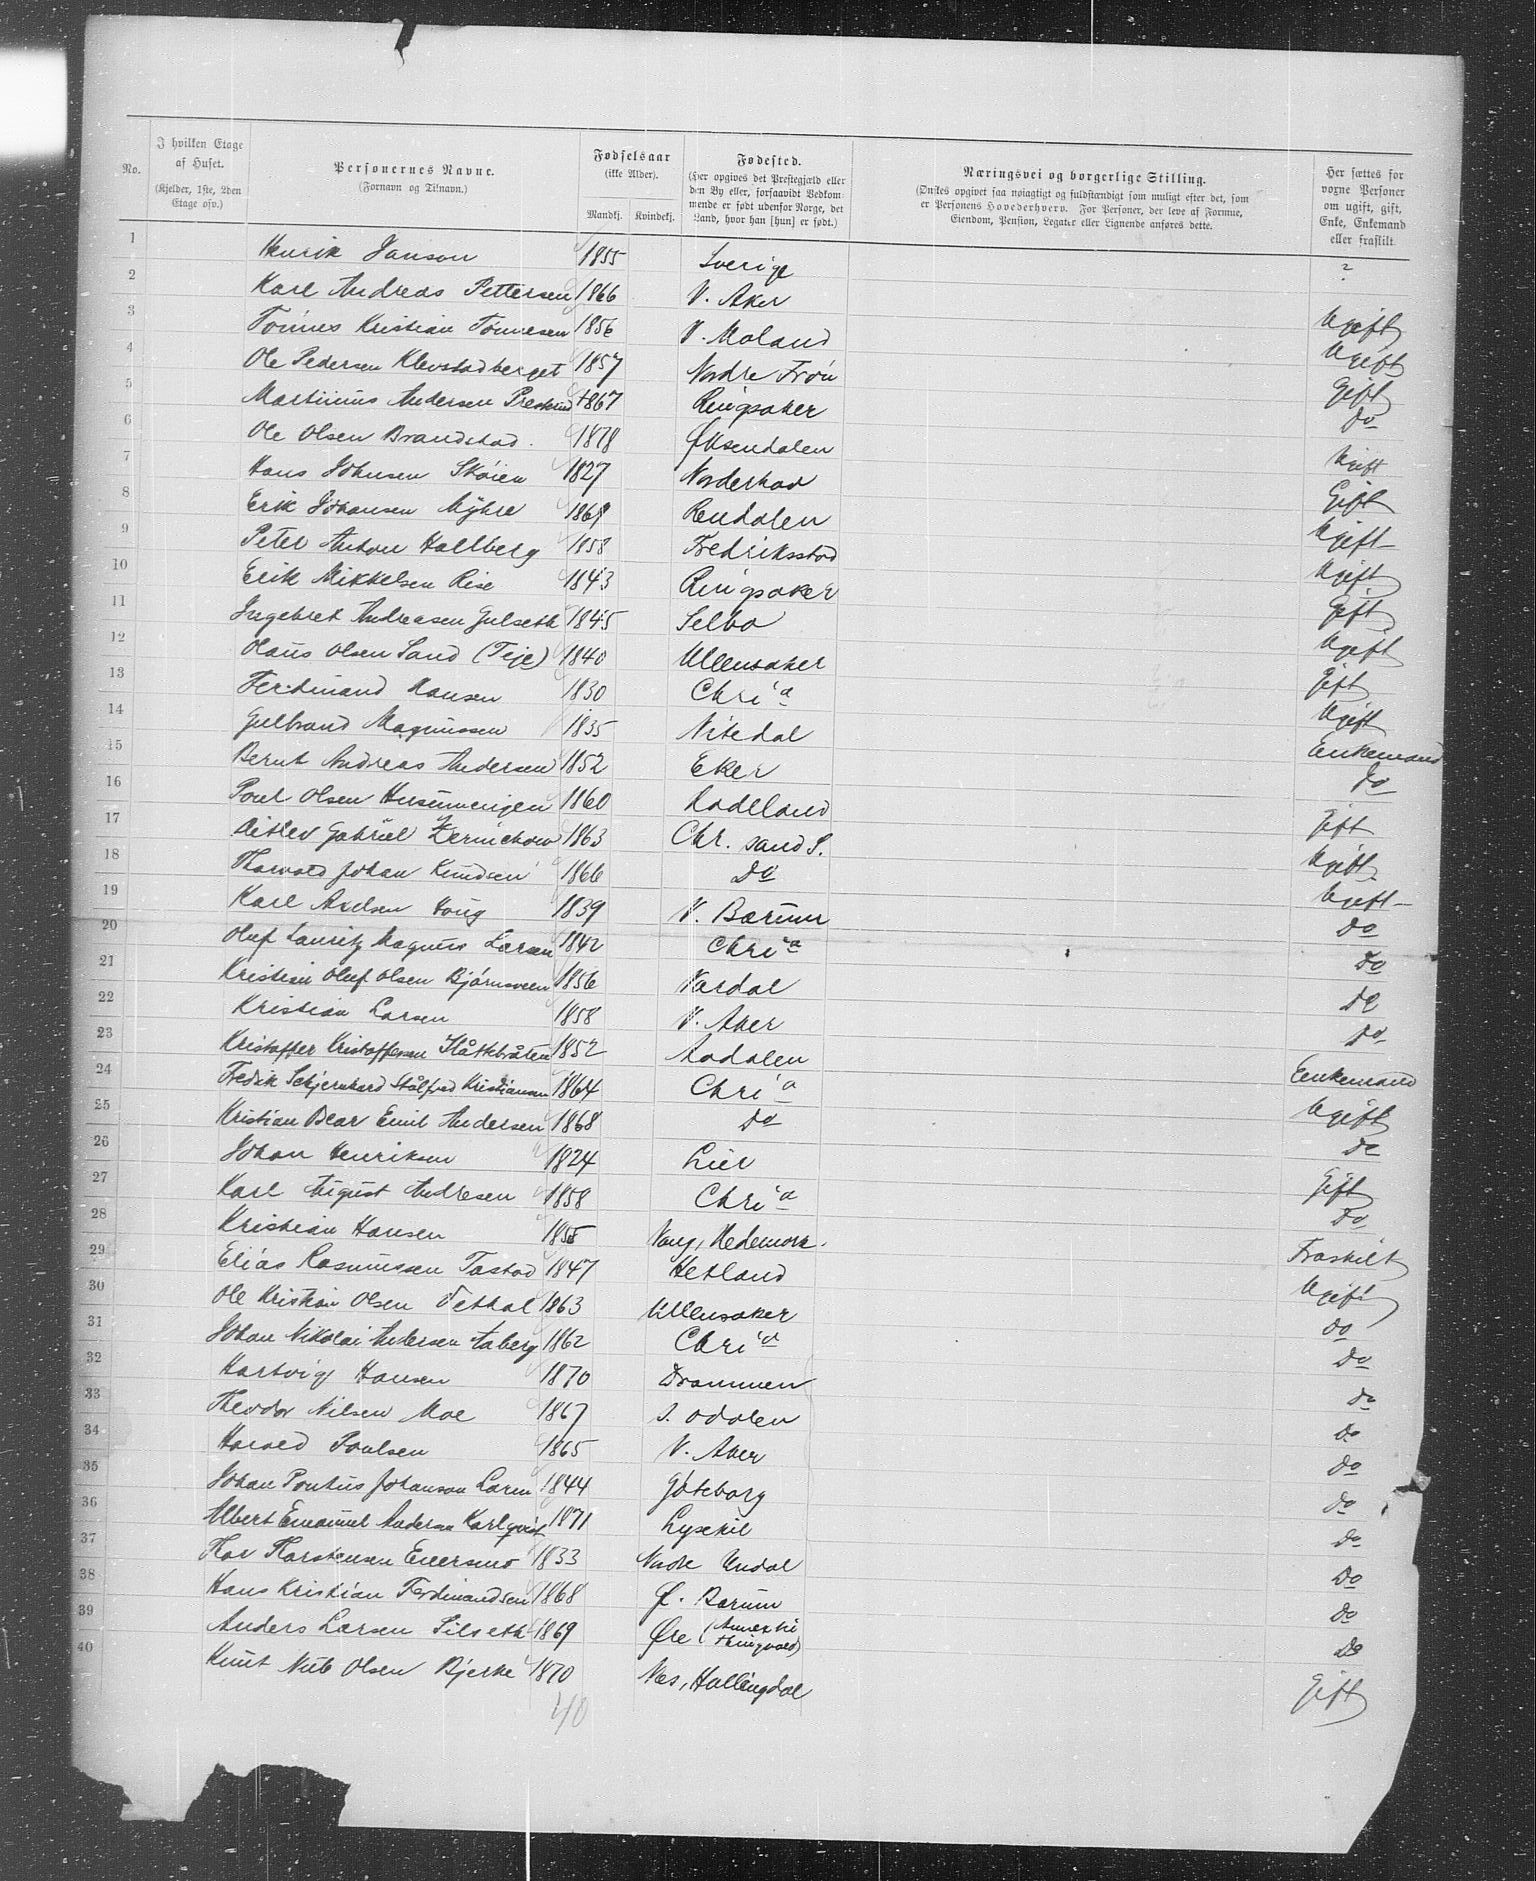 No.
I hvilken Etage af Huset.
(Kjelder, 1ste, 2den Etage osv.)
Personernes Navne.
(Fornavn og Tilnavn.)
Fødselsaar
(ikke Alder).
Mandkj. Kvindekj.
Fødested.
(Her opgives det Prestegjæld eller
den By eller, forsaavidt Vedkom-
mende er født udenfor Norge, det
Land, hvor han [hun] er født.)
Næringsvei og borgerlige Stilling.
(Ønskes opgivet saa nøiagtigt og fuldstændigt som muligt efter det, som
er Personens Hovederhverv. For Personer, der leve af Formue,
Eiendom, Pension, Legater eller Lignende anføres dette.
Her sættes for
voxne Personer
om ugift, gift,
Enke, Enkemand
eller fraskilt.
1 Henrik Janson 1855 Sverige ?
2 Karl Andreas Pettersen 1866 V. Aker Ugift
3 Tönnes Kristian Tönnesen 1856 V. Moland Ugift
4 Ole Pedersen Klevstadberget 1857 Nordre Fron Gift
5 Martinius Andersen 1867 Ringsaker Do
6 Ole Olsen Brandstad. 1878 Øksendalen Ugift
7 Hans Johnsen Sköien 1827 Norderhov Gift
8 Erik Johansen Myhre 1869 Rendalen Ugift
9 Peter Anton Hallberg 1858 Fredriksstad Ugift
10 Erik Mikkelsen Rise 1843 Ringsaker Gift
11 Ingebret Andreasen Gulseth 1845 Selbo Ugift
12 Olaus Olsen Sand (Teje) 1840 Ullensaker Gift
13 Ferdinand Hansen 1830 Chria Ugift
14 Gulbrand Magnussen 1835 Nitedal Enkemand
15 Bernt Andreas Andersen 1852 Eker Do
16 Poul Olsen Husumeiegen 1860 Hadeland Gift
17 Ditlev Gabriel Zernichow 1863 Chr. sand S. Ugift
18 Thorvald Johan Knudsen 1866 Do Ugift
19 Karl Axelsen Houg 1839 V. Bærum Do
20 Oluf Lauritz Magnus Larsen 1842 Chria Do
21 Kristian Oluf Olsen Bjørnsveen 1856 Vardal Do
22 Kristian Larsen 1858 V. Aker Do
23 Kristoffer Kristoffersen Slåttebråten 1852 Aadalen Enkemand
24 Fredrik Schjernhard Stålfred Kristiansen 1864 Chria Ugift
25 Kristian Bear Emil Andersen 1868 Do Do
26 Johan Henriksen 1824 Lier Gift
27 Karl August Andresen 1858 Chria Do
28 Kristian Hansen 1855 Vang, Hedemark. Fraskilt
29 Elias Rasmussen Tastad 1847 Hetland Ugift
30 Ole Kristian Olsen Vethal 1863 Ullensaker Do
31 Johan Nikolai Andersen Aaberg 1862 Chria Do
32 Hartvig Hansen 1870 Drammen Do
33 Theodor Nilsen Moe 1867 S. Odalen Do
34 Harald Poulsen 1865 V. Aker Do
35 Johan Pontus Johanson Loren 1844 Göteborg Do
36 Albert Emanuel Anderson Karlqvist 1871 Lysekil Do
37 Thor Thorstensen Eversmo 1833 Nordre Undal Do
38 Hans Kristian Ferdinandsen 1868 Ø. Bærum Do
39 Anders Larsen Silseth 1869 Øre (Annex til Thingvold) Do
40 Knut Nub Olsen Bjerke 1870 Nes, Hallingdal Gift
40